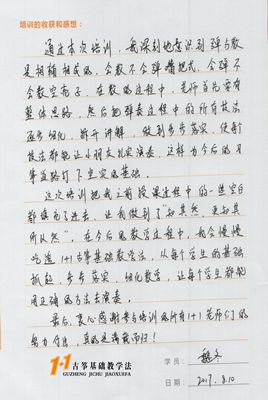 培训的收获和感想：
通过本次培训，我深刻地意识到弹与教
是相辅相成的，会教不会弹嘴把式，会弹不
会教空有子，在教的过程中，老师首先要有
整体思路，然后把弹奏过程中的所有技法
逐步细化，都开讲解，做到步步落实，使每个
技法都能让小朋友扎实演奏，这样为今后的习
筝之路打下坚实的基础。
这次培训把我之前授课过程中的一些空白
都填白了进去，让我做到了"知其然，更知其
所以然"，在今后的教学过程中，我会慢慢
吃透1+1古筝基础教学法，从每个学生的基础
抓起，步步落实，细化教学，让每个学生都能
用正确的方法去演奏。
最后，衷心感谢参与培训的所有1+1老师们的
努力付出，真的是满载而归！
学员：
1+1古筝基础教学法
GUZHENG JICHU JIAOXUEFA
日期：2017.8.10